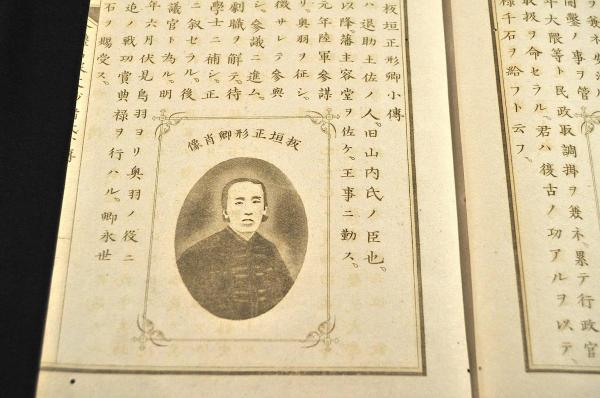 開鑿ノ事ヲ管
年大隈等ト民政取調掛ヲ兼ネ、暴テ行政官
取扱ヲ命セラル。君ハ復古ノ功アルヲ以テ、
祿千石ヲ給フト云フ。
板垣正形卿小傳
ハ退助土佐ノ人。旧山内氏ノ臣也。
以降。藩主容堂ヲ佐ケ。王事ニ勤ス。
元年陸軍參謀
リ。奥羽ヲ征シ。
徴サレテ參與
シ。參議ニ進ム。
劇職ヲ解テ待
學士ニ補シ。正
ニ叙セラル。後
議官ト為ル。明
年六月伏見鳥羽ヨリ奥羽ノ役ニ
追ノ戰功賞典祿ヲ行ハル。卿永世
石ヲ賜受ス。
板垣正形卿肖像